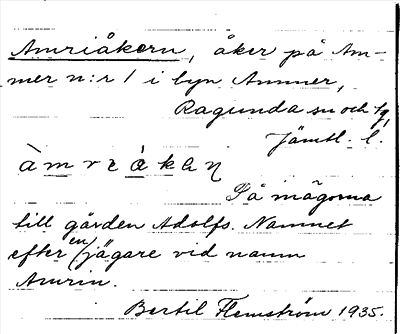 Amriåkern, åker på Am-
mer n:r 1 i byn Ammer,
Ragunda sn och tg,
Jämtl. l.
På mågorna
till gården Adolfs. Namnet
efter en jägare vid namn
Amrin.
Bertil Flemström 1935.